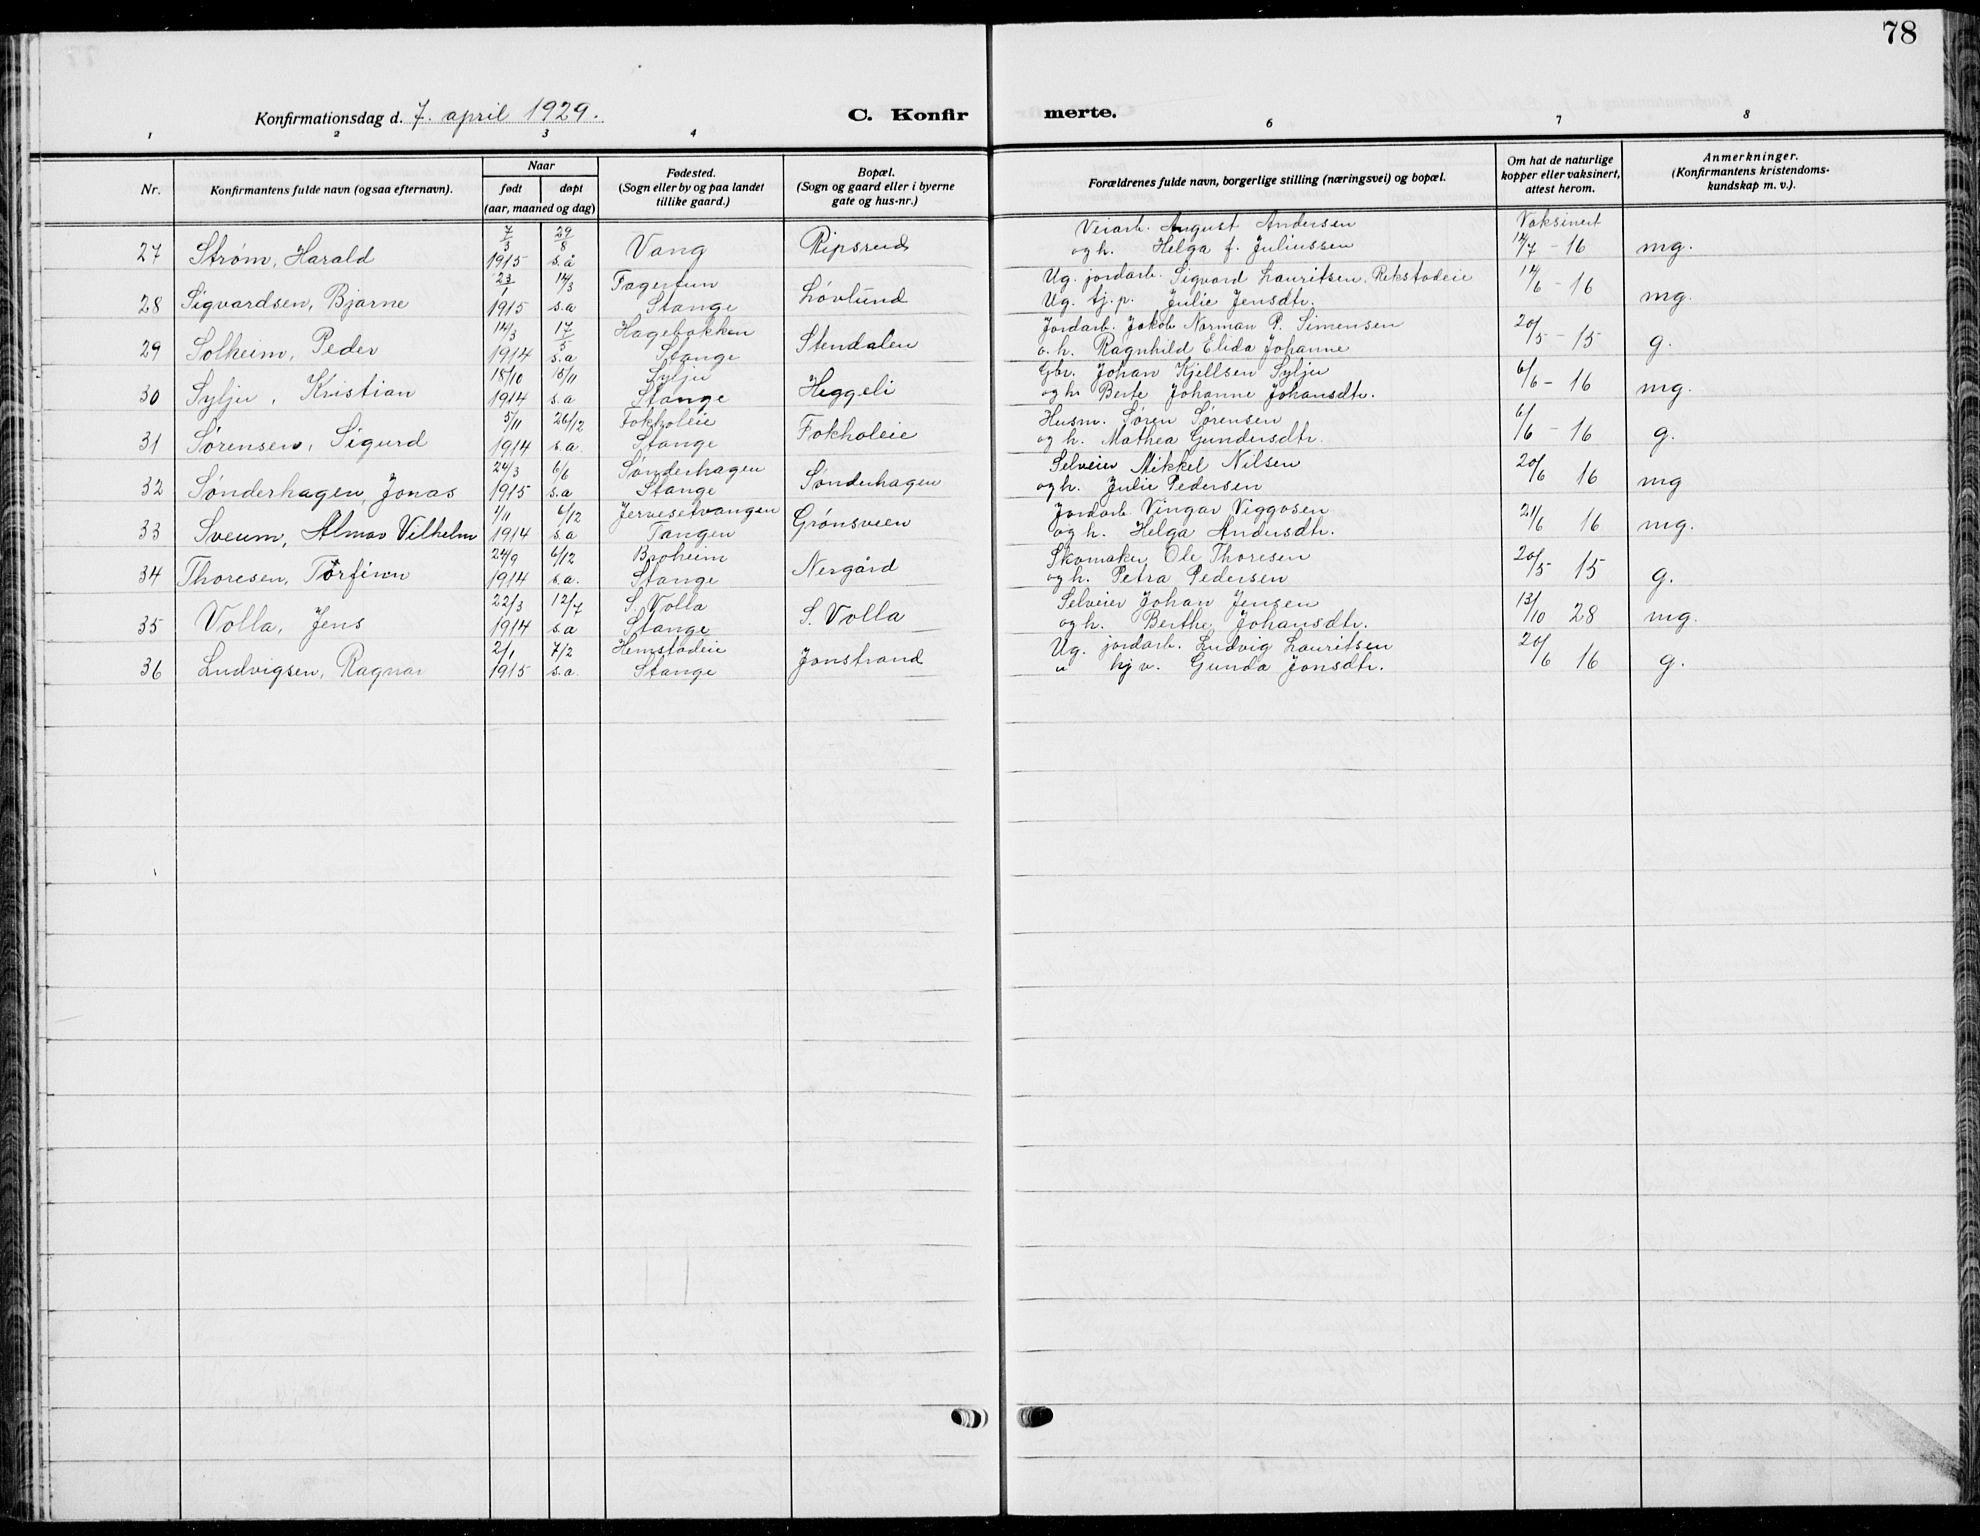 78
Konfirmationsdag d. 7. april 1929.
C. Konfirmerte.
1 2 3 4 6 7 8
Nr.
Konfirmantens fulde navn (ogsaa efternavn).
Naar
født døpt
(aar, maaned og dag)
Fødested.
(Sogn eller by og paa landet
tillike gaard.)
Bopæl.
(Sogn og gaard eller i byerne
gate og hus-nr.)
Forældrenes fulde navn, borgerlige stilling (næringsvei) og bopæl.
Om hat de naturlige
kopper eller vaksinert,
attest herom.
Anmerkninger.
(Konfirmantens kristendoms-
kundskap m. v.).
7/3 29/8 Veiarb. August Andersen Vaksinert
27 Strøm, Harald 1915 s.å Vang Ripsrud og h. Helga f. Juliussen 14/7 - 16 mg.
23/1 14/3 Fagertun Ug. jordarb. Sigvard Lauritsen, Rekstadeie 14/6 - 16
28 Sigvardsen, Bjarne 1915 s.a Stange Løvlund Ug. tj.p. Julie Jensdtr. mg.
14/3 17/5 Hagebakken Jordarb. Jakob Norman P. Simensen 20/5 - 15
29 Solheim, Peder 1914 s.a Stange Stendalen o. h. Ragnhild Elida Johanne g.
18/10 15/11 Sylju Gbr. Johan Kjellsen Sylju 6/6 - 16
30 Sylju, Kristian 1914 s.a Stange Heggeli og h. Berte Johanne Johansdtr. mg.
5/11 26/12 Fokholeie Husm. Søren Sørensen 6/6 - 16
31 Sørensen, Sigurd 1914 s.a. Stange Fokholeie og h. Mathea Gundersdtr. g.
24/3 6/6 Sønderhagen Selveier Mikkel Nilsen 20/6 16
32 Sønderhagen, Jonas 1915 s.a Stange Sønderhagen og h. Julie Pedersen mg
1/11 6/12 Jervesetvangen Jordarb. Vingar Viggosen 21/6 16
33 Sveum, Almar Vilhelm 1914 s.a Tangen Grønsveen og h. Helga Andersdtr. mg.
24/9 6/12 Broheim Skomaker Ole Thoresen 20/5 15
34 Thoresen, Torfinn 1914 s.a. Stange Nergård og h. Petra Pedersen g.
22/3 12/7 S. Volla Selveier Johan Jensen 13/10 28
35 Volla, Jens 1914 s.a Stange S. Volla og h. Berthe Johansdtr. mg.
2/1 7/2 Hemstadeie Ug. jordarb. Ludvig Lauritsen 20/6 16
36 Ludvigsen, Ragnar 1915 s.a. Stange Jonstrand " hj v. Gunda Jonsdtr. g.